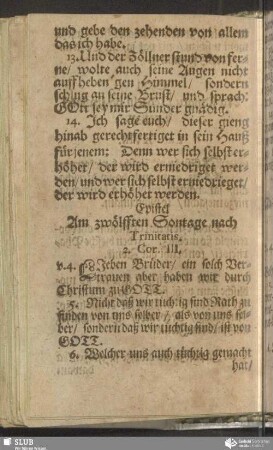 und gebe den zehenden von allem
das ich habe.
13. Und der Zöllner stund von fer-
ne/ wolte auch seine Augen nicht
auffheben gen Himmel/ sondern
schlug an seine Brust/ und sprach:
GOtt sey mir Sünder gnädig.
14. Ich sage euch/ dieser gieng
hinab gerechtfertiget in sein Hauß
für jenem: Denn wer sich selbst er-
höhet/ der wird erniedriget wer-
den/ und wer sich selbst erniedriget/
der wird erhöhet werden.
Epistel
Am zwölfften Sontage nach
Trinitatis.
2. Cor. III.
v. 4. LJeben Brüder/ ein solch Ver-
trauen aber haben wir durch
Christum zu GOTT.
5. Nicht daß wir tüchtig sind Rath zu
finden von uns selber/ als von uns sel-
ber/ sondern daß wir tüchtig sind/ ist von
GOTT.
6. Welcher uns auch tüchtig gemacht
hat/
SLUB